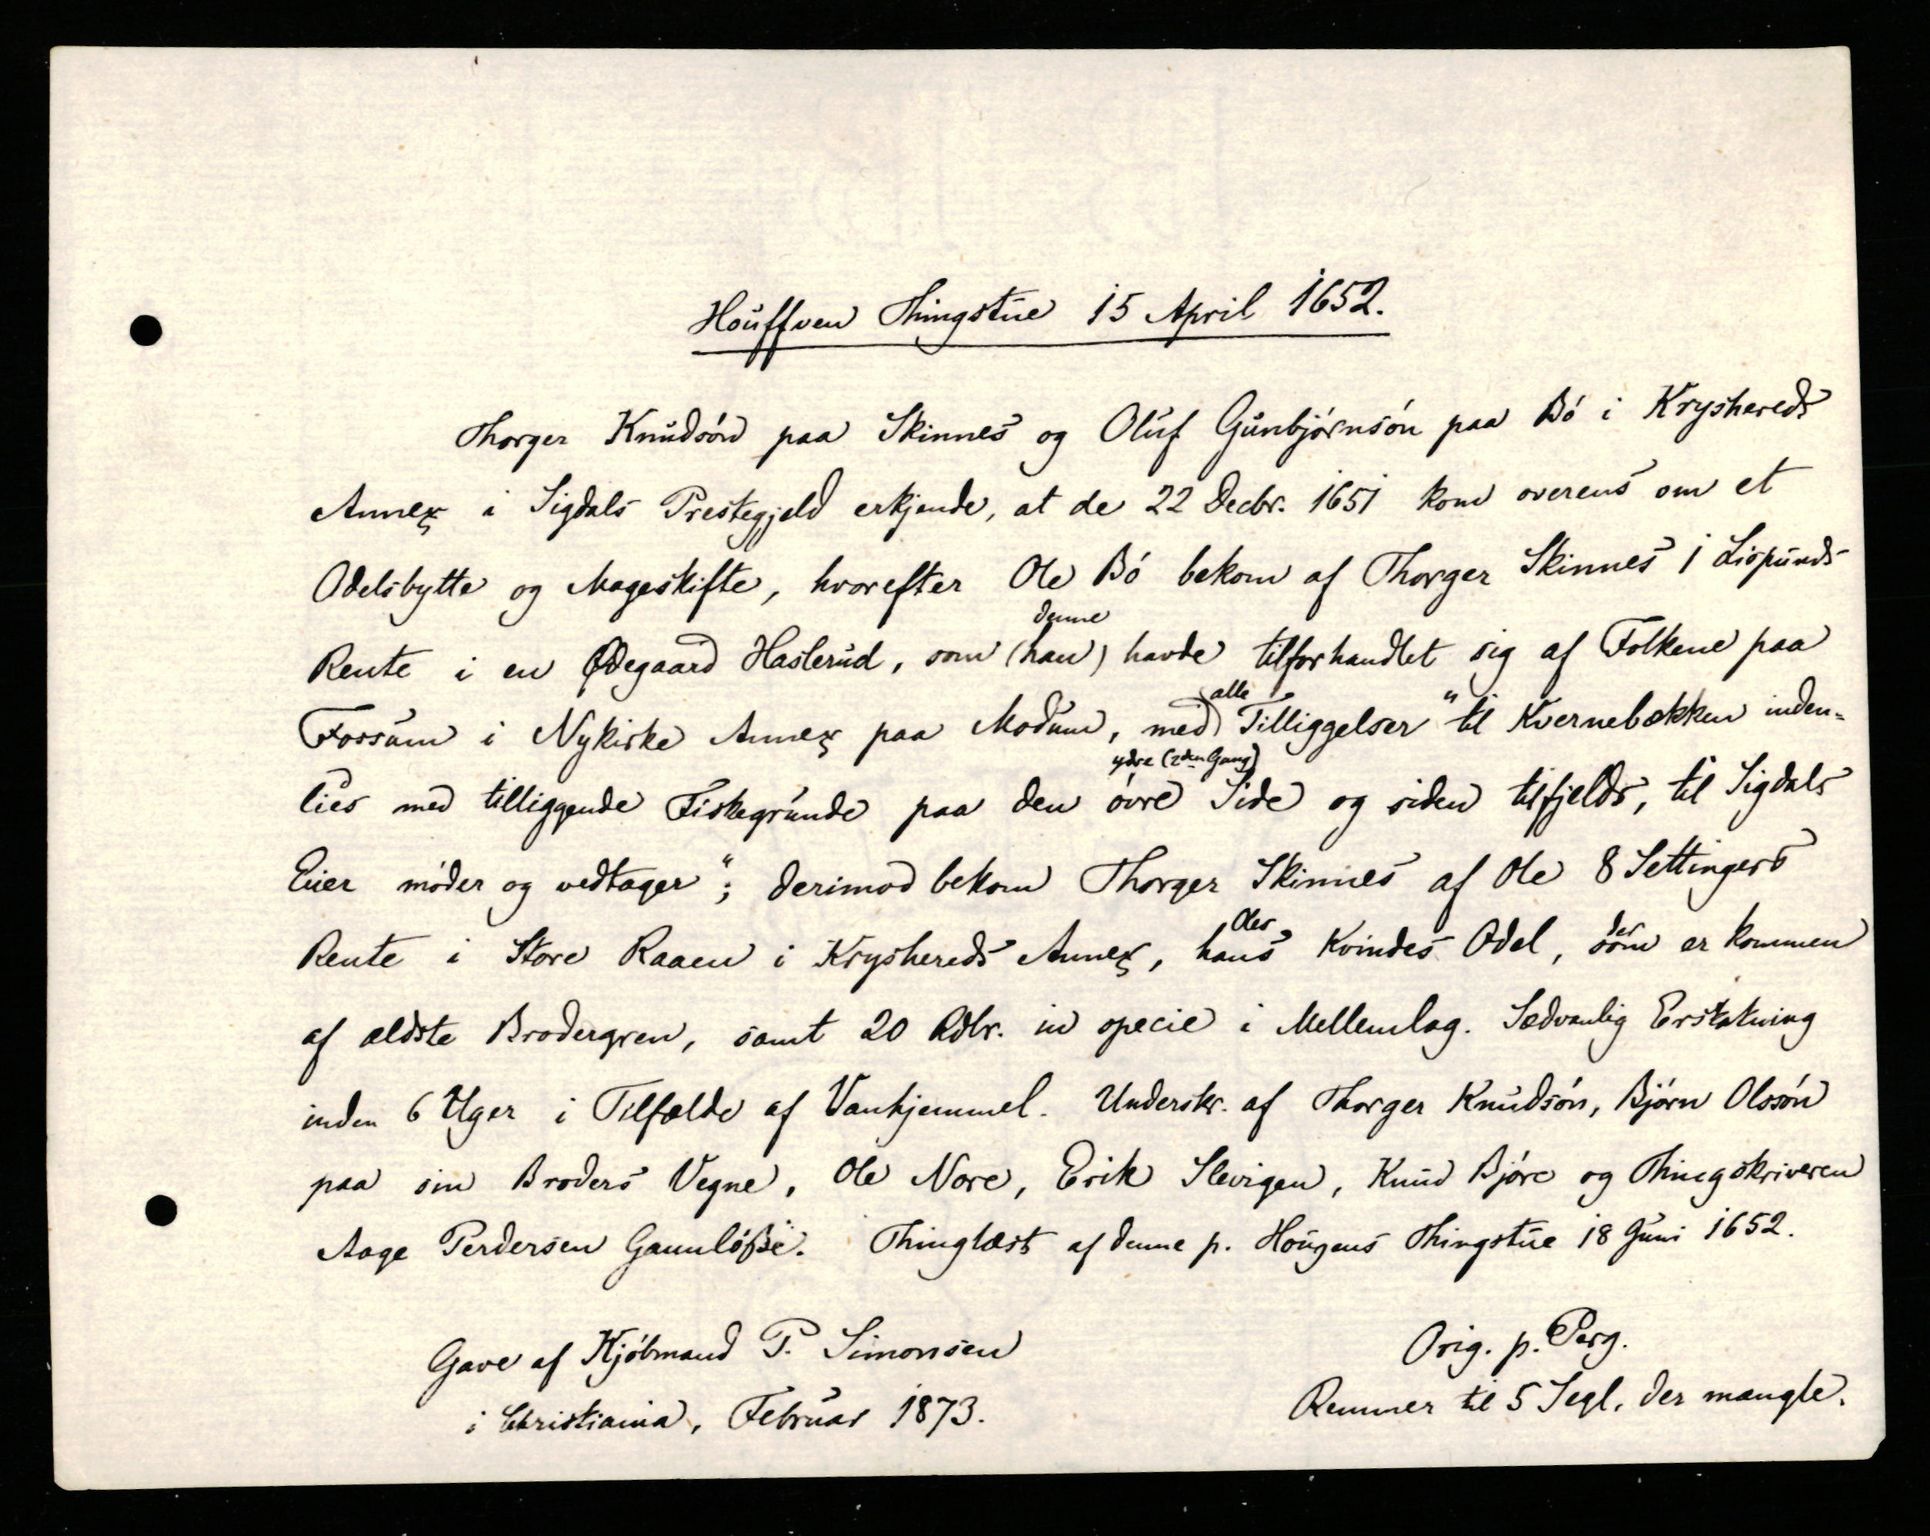 Houffven Thingstue 15 April 1652.
Thorger Knudsön paa Skinnes og Oluf Gunbjörnsön paa Bö i Krysherreds
Annex i Sigdals Prestegjeld erkjende, at de 22 Decbr. 1651 kom overens om et
Odelsbytte og Mageskifte, hvorefter Ole Bö bekom af Thorger Skinnes 1 Lispunds
denne
Rente i en Ödegaard Haslerud, som (han) havde tilforhandlet sig af Folkene paa
alle
Fossum i Nykirke Annex paa Modum, med Tilliggelser "til Kvernebækken inden-
ydre (2den Gang)
lies med tilliggende Fiskegrunde paa den övre Side og siden tilfjelds, til Sigdals
Eier möder og vedtager"; derimod bekom Thorger Skinnes af Ole 8 Settingers
Oles der
Rente i Store Raaen i Kryshereds Annex, hans Kvindes Odel, som er kommen
af ældste Brodergren, samt 20 Rdlr. in specie i Mellemlag. Sædvanlig Erstatning
inden 6 Uger i Tilfælde af Vanhjemmel. Underskr. af Thorger Knudsön, Björn Olssön
paa sin Broders Vegne, Ole Nore, Erik Slevigen, Knud Björe og Thingskriveren
Aage Perdersen Gamlößie. Thinglæst af denne p. Hougens Thingstue 18 Juni 1652.
Gave af Kjöbmand P. Simonsen
i Christiania, Februar 1873.
Orig. p. Perg.
Remmer til 5 Segl, der mangle.